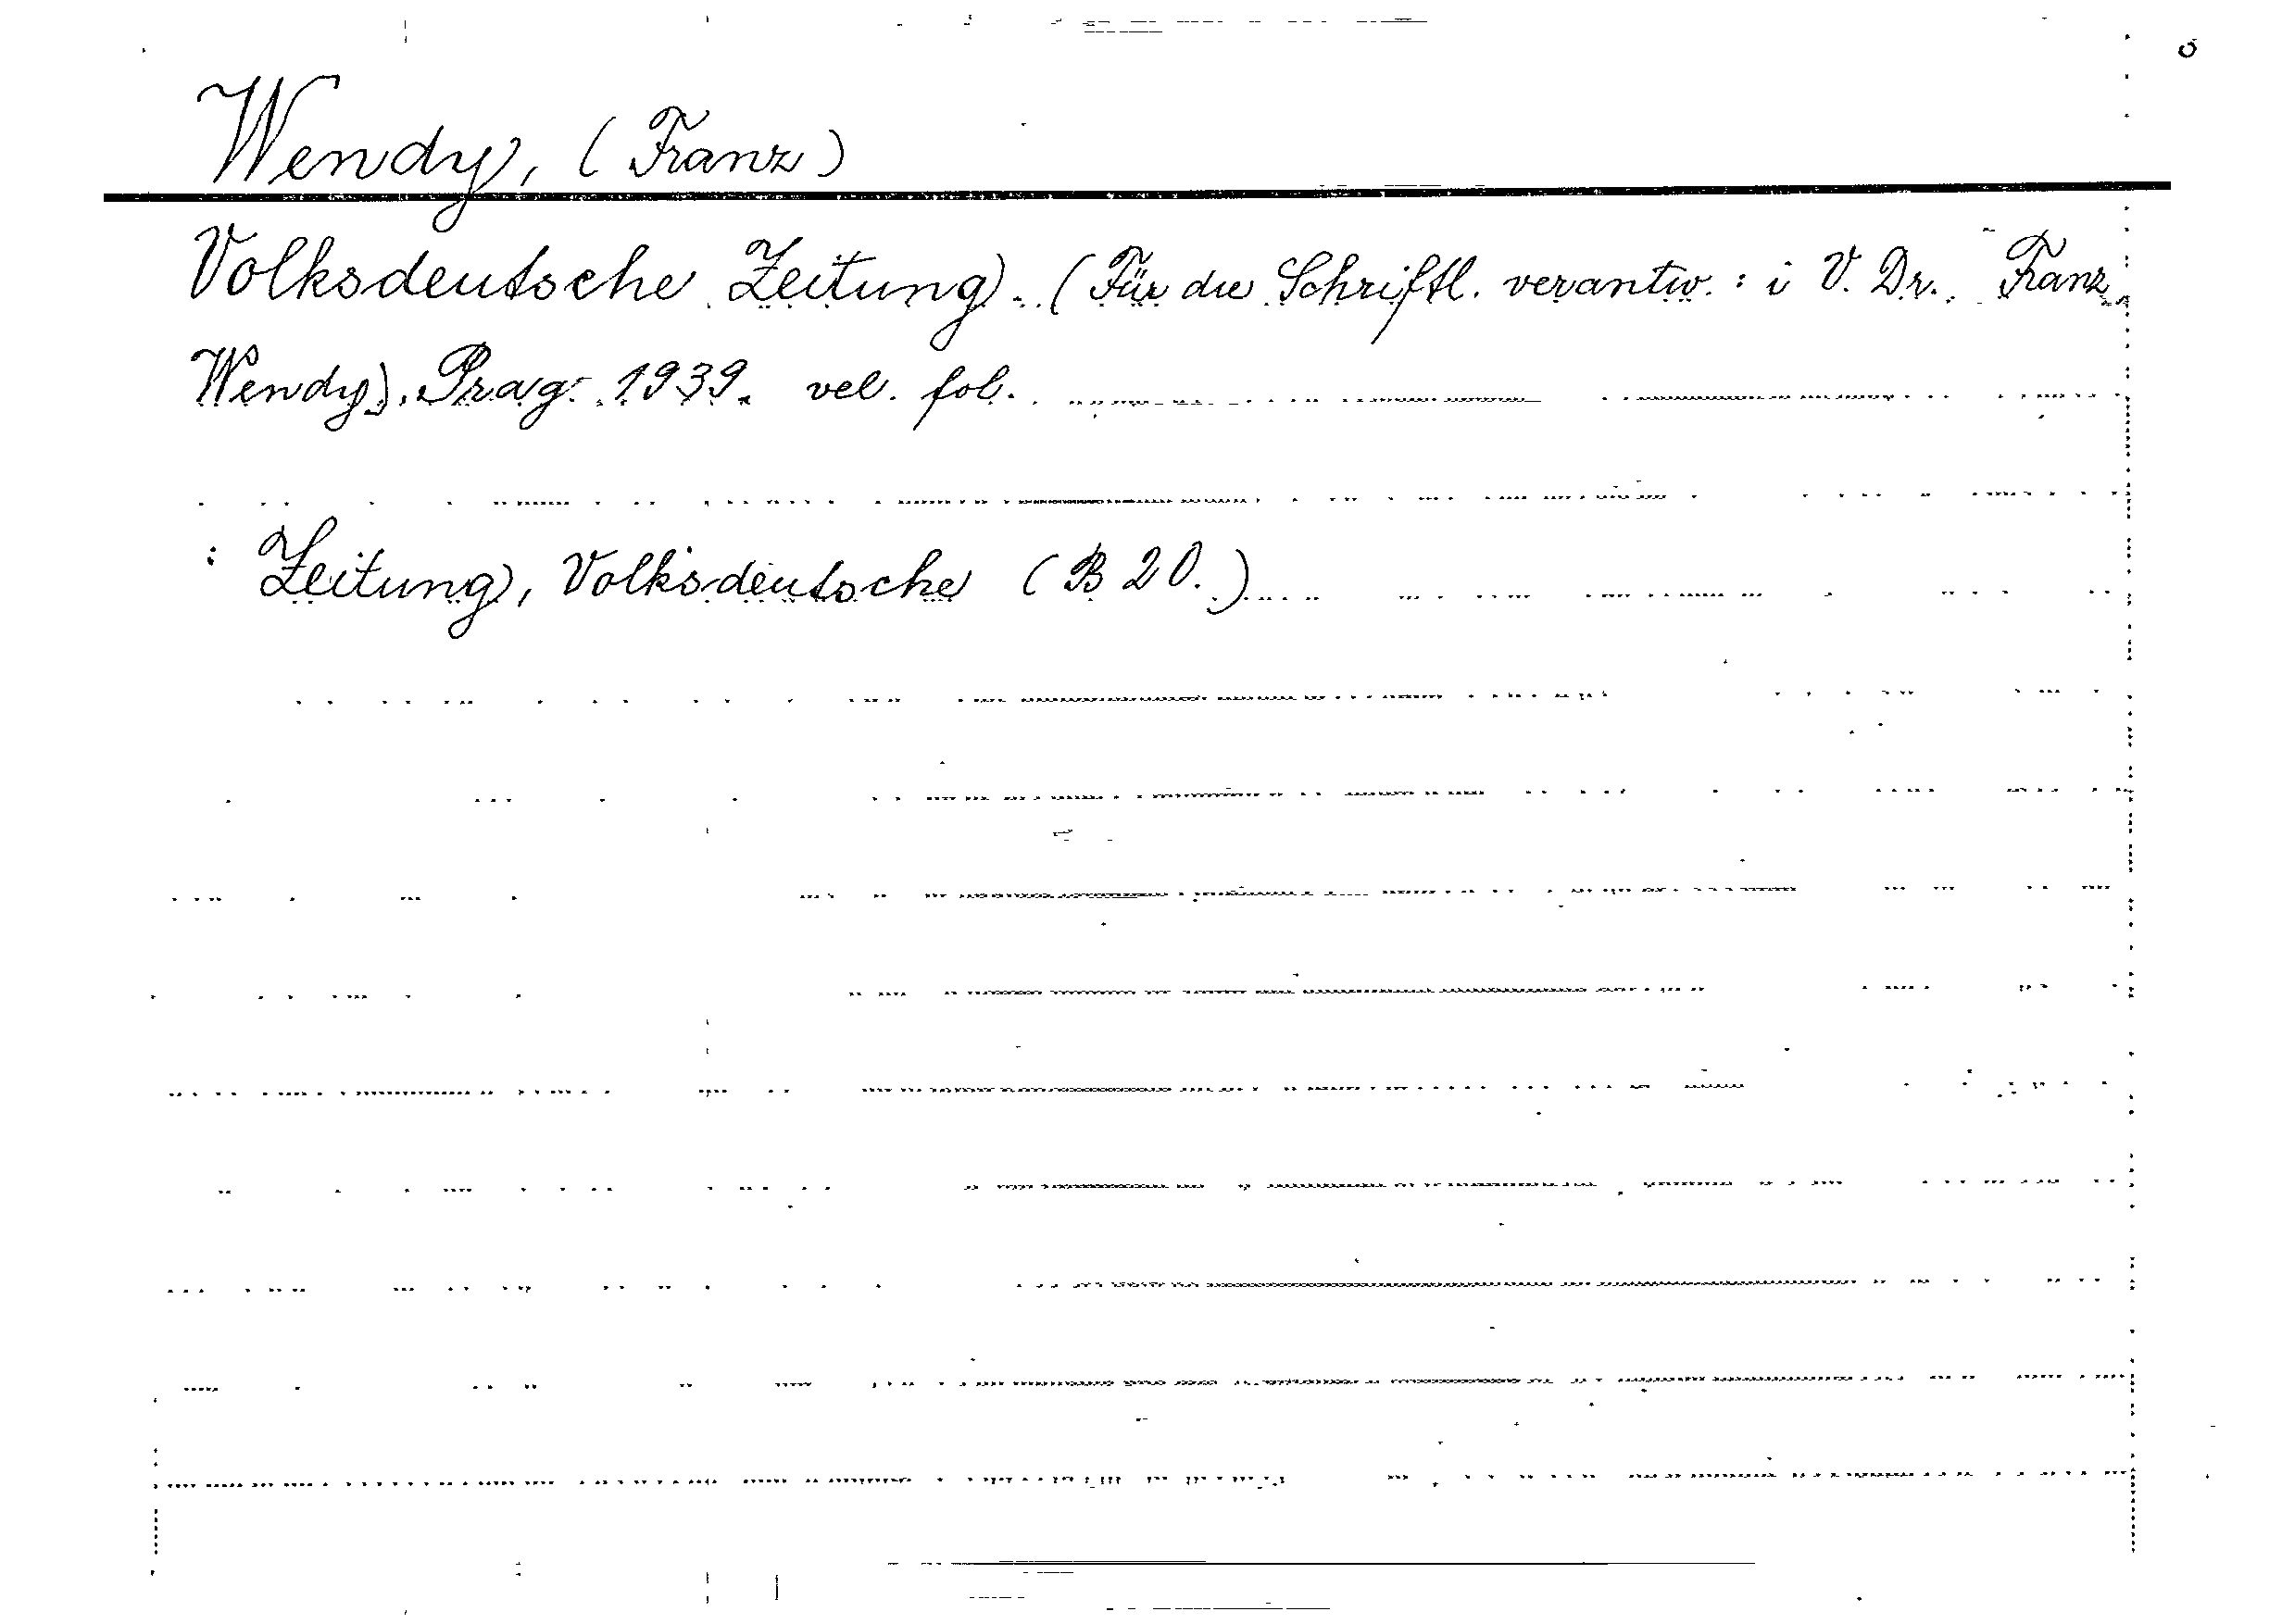 Wendy, (Franz)
Volksdeutsche Zeitung. (Für die Schriftl. verantw. : i V. Dr. Franz
Wendy). Prag 1939. vel. fol.
: Zeitung, Volksdeutsche (B 20.)